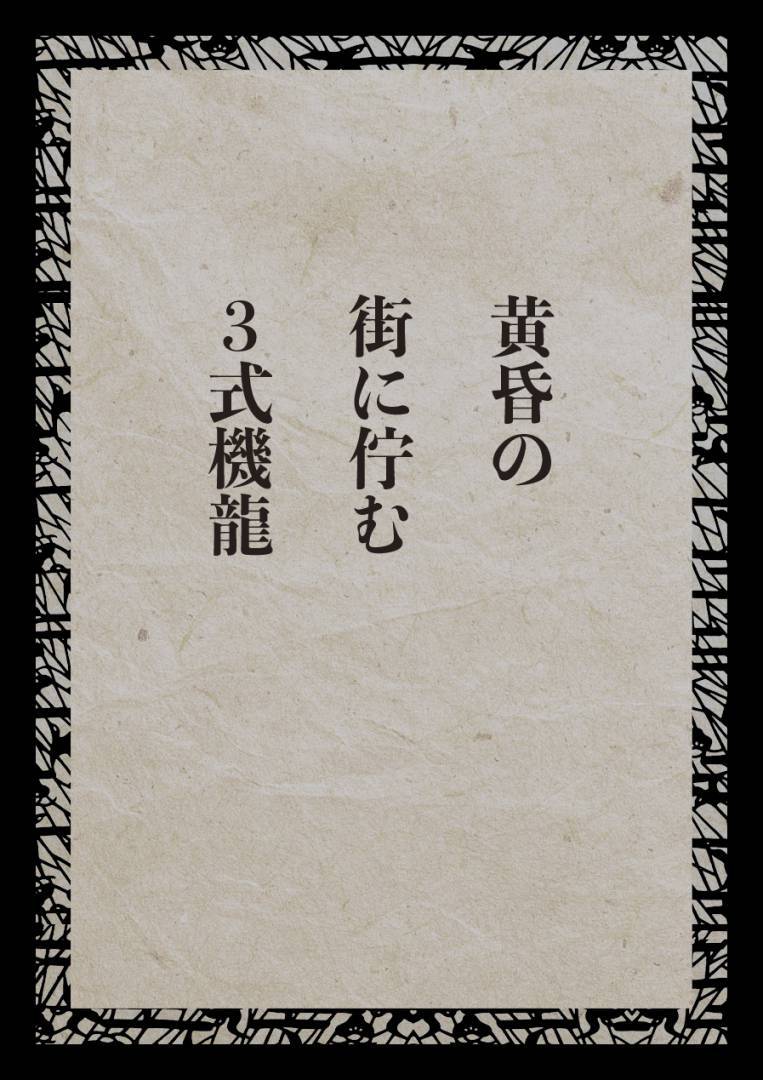 黄昏の
街に佇む
３式機龍